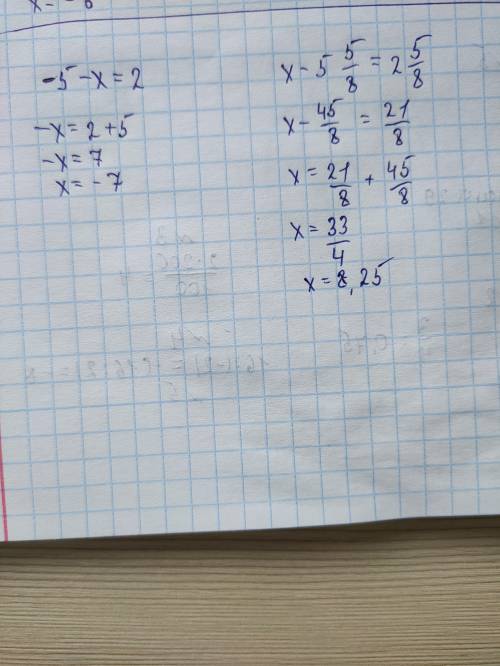 -5-x=2
-x=2+5
-x=7
x=-7
x-5 5/8=2 5/8
x-45/8=21/8
x=21/8+45/8
x=33/4
x=8,25